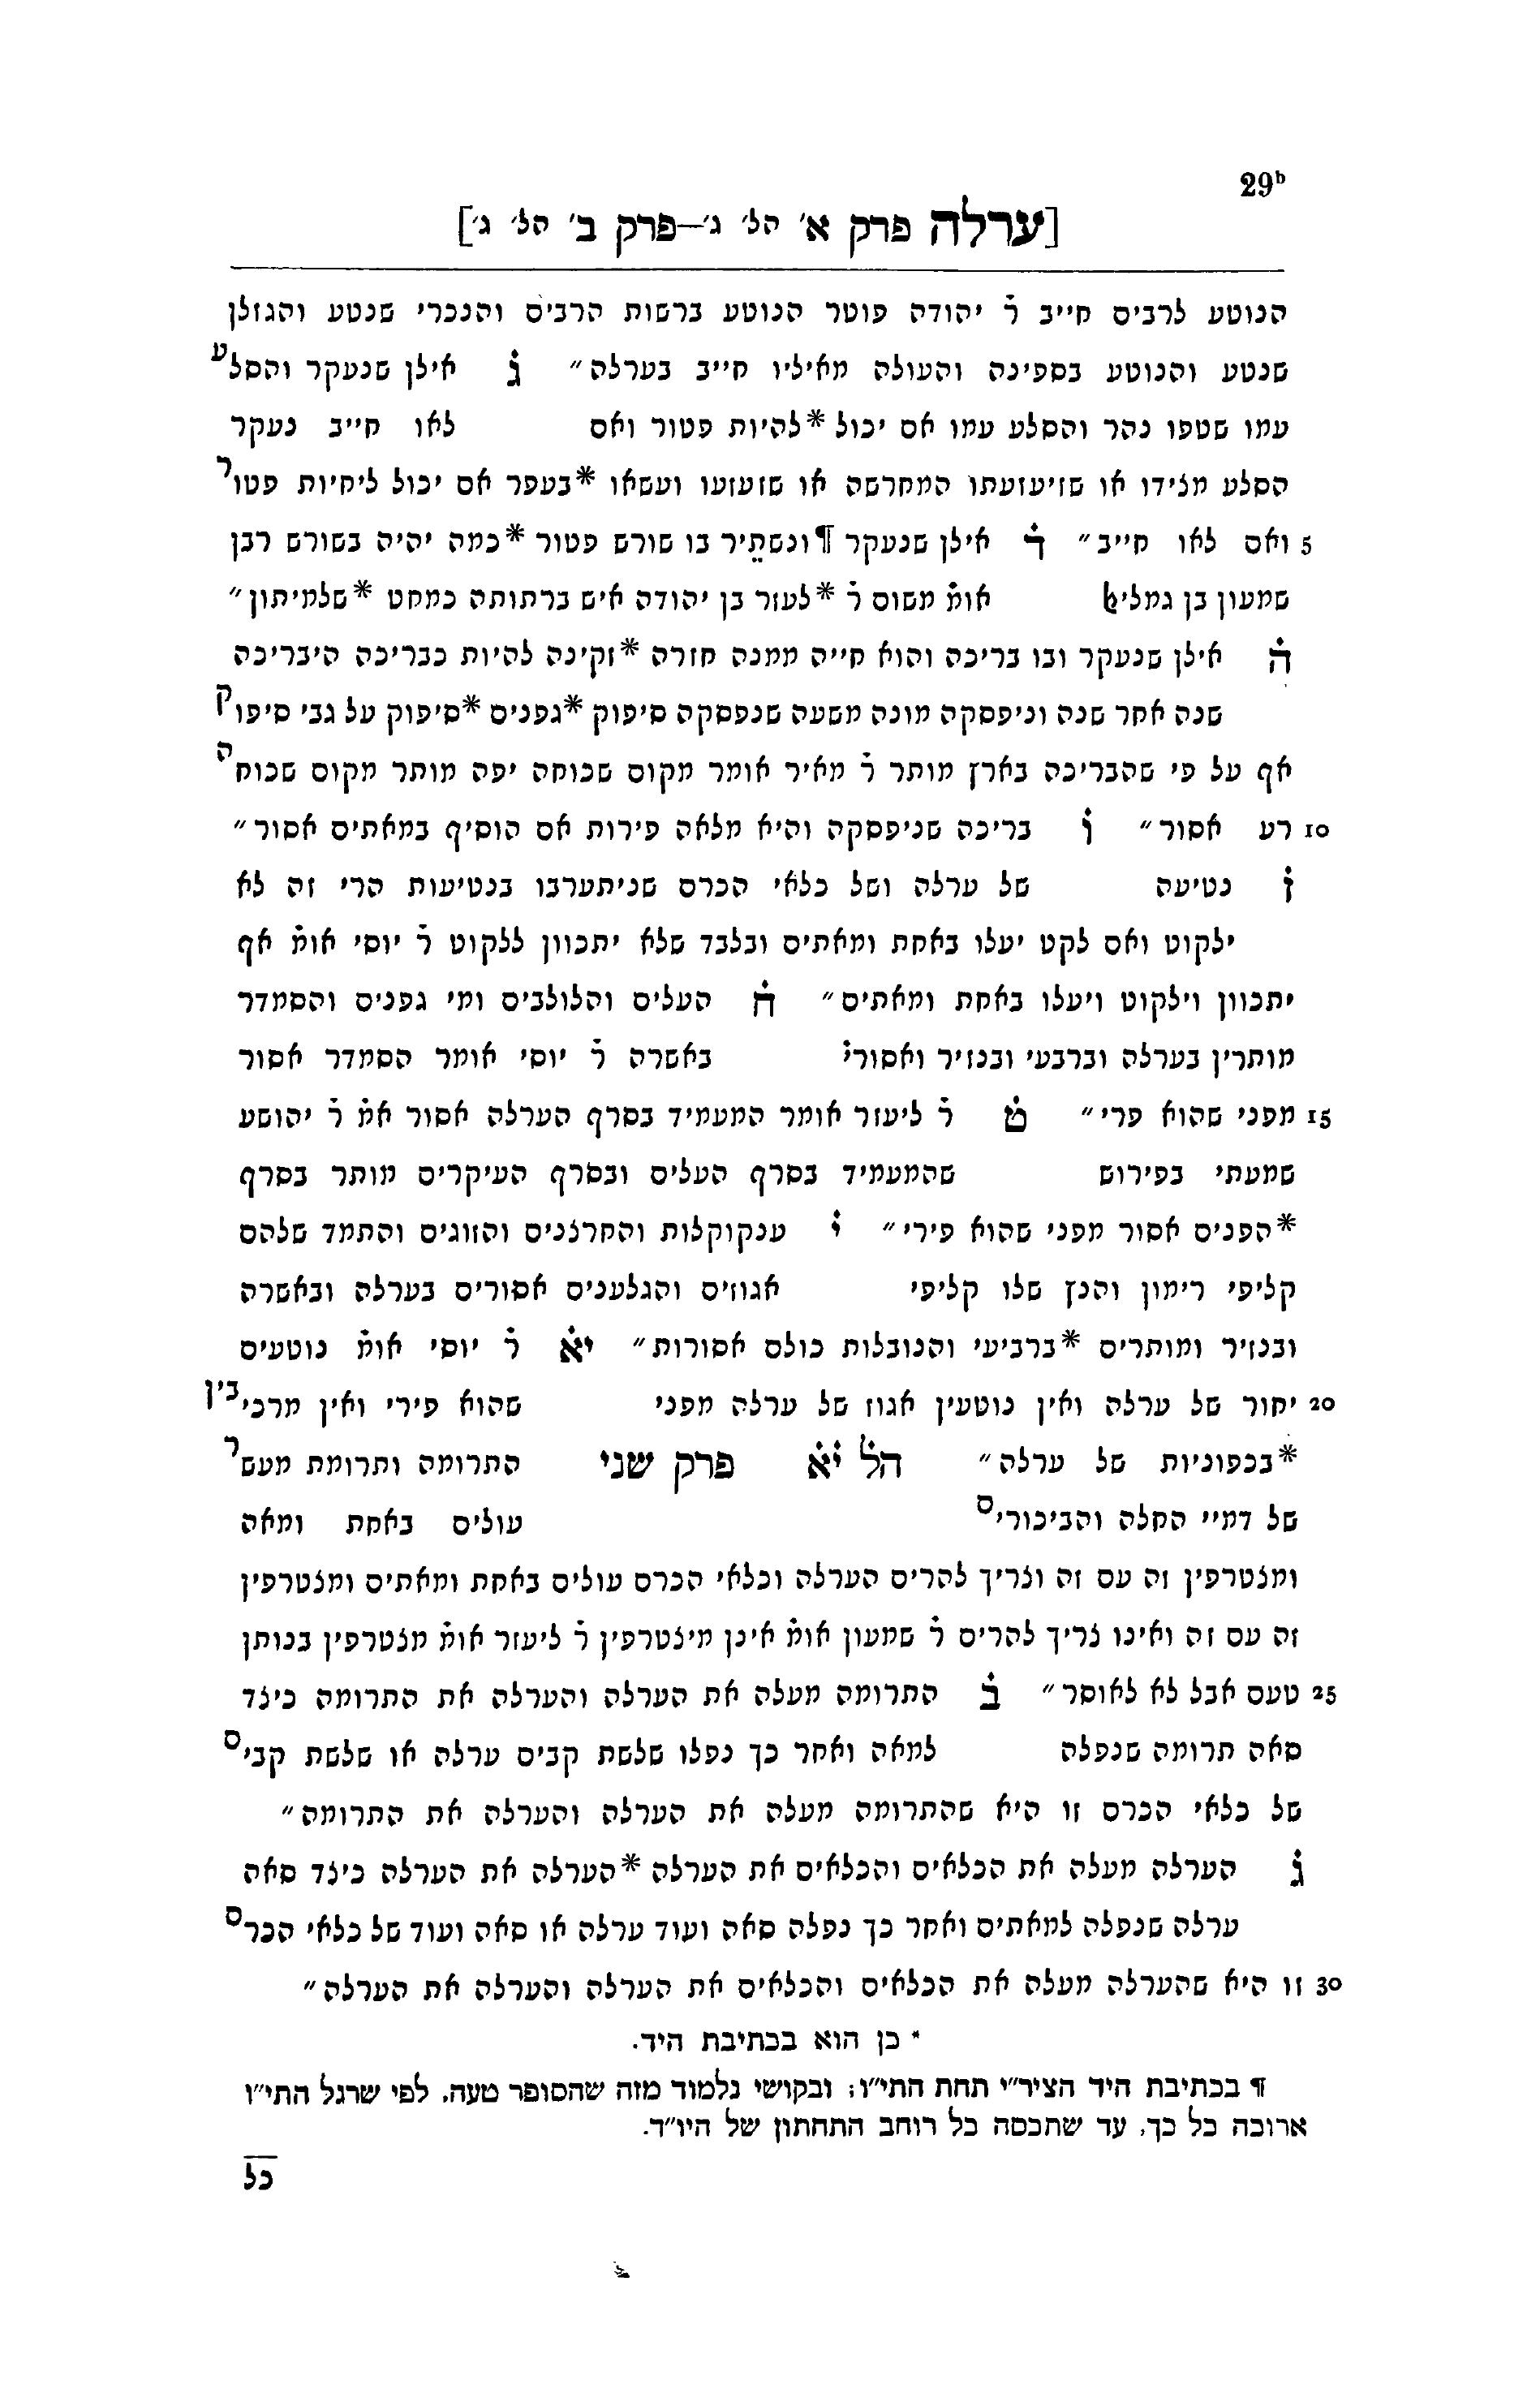 29ᵇ
[ערלה פרק א׳ הל׳ ג׳—פרק ב׳ הל׳ ג׳]
הנוטע לרבים חייב ר̇ יהודה פוטר הנוטע ברשות הרבים והנכרי שנטע והגזלן
שנטע והנוטע בספינה והעולה מאיליו חייב בערלה״ ג̇ אילן שנעקר והסלע
עמו שטפו נהר והסלע עמו אם יכול *להיות פטור ואם לאו חייב נעקר
הסלע מצידו או שזיעזעתו המחרשה או שזעזעו ועשאו *בעפר אם יכול ליחיות פטור
5 ואם לאו חייב״ ד̇ אילן שנעקר ¶ונשתֵיר בו שורש פטור *כמה יהיה בשורש רבן
שמעון בן גמליא̇ל אומ̇ משום ר̇ *לעזר בן יהודה איש ברתותה כמחט *שלמיתון״
ה̇ אילן שנעקר ובו בריכה והוא חייה ממנה חזרה *זקינה להיות כבריכה היבריכה
שנה אחר שנה וניפסקה מונה משעה שנפסקה סיפוק *גפנים *סיפוק על גבי סיפוק
אף על פי שהבריכה בארץ מותר ר̇ מאיר אומר מקום שכוחה יפה מותר מקום שכוחה
10 רע אסור״ ו̇ בריכה שניפסקה והיא מלאה פירות אם הוסיף במאתים אסור״
ז̇ נטיעה של ערלה ושל כלאי הכרם שניתערבו בנטיעות הרי זה לא
ילקוט ואם לקט יעלו באחת ומאתים ובלבד שלא יתכוון ללקוט ר̇ יוסי אומ̇ אף
יתכוון וילקוט ויעלו באחת ומאתים״ ח̇ העלים והלולבים ומי גפנים והסמדר
מותרין בערלה וברבעי ובנזיר ואסורי̇ באשרה ר̇ יוסי אומר הסמדר אסור
15 מפני שהוא פרי״ ט̇ ר̇ ליעזר אומר המעמיד בסרף הערלה אסור אמ̇ ר̇ יהושע
שמעתי בפירוש שהמעמיד בסרף העלים ובסרף העיקרים מותר בסרף
*הפנים אסור מפני שהוא פירי״ י̇ ענקוקלות והחרצנים והזוגים והתמד שלהם
קליפי רימון והנץ שלו קליפי אגוזים והגלענים אסורים בערלה ובאשרה
ובנזיר ומותרים *ברביעי והנובלות כולם אסורות״ יא̇ ר̇ יוסי אומ̇ נוטעים
20 יחור של ערלה ואין נוטעין אגוז של ערלה מפני שהוא פירי ואין מרכיבין
*בכפוניות של ערלה״ הל̇ י̇א̇ פרק שני התרומה ותרומת מעשר
של דמיי החלה והביכורים עולים באחת ומאה
ומצטרפין זה עם זה וצריך להרים הערלה וכלאי הכרם עולים באחת ומאתים ומצטרפין
זה עם זה ואינו צריך להרים ר̇ שמעון אומ̇ אינן מיצטרפין ר̇ ליעזר אומ̇ מצטרפין בנותן
25 טעם אבל לא לאוסר״ ב̇ התרומה מעלה את הערלה והערלה את התרומה כיצד
סאה תרומה שנפלה למאה ואחר כך נפלו שלשת קבים ערלה או שלשת קבים
של כלאי הכרם זו היא שהתרומה מעלה את הערלה והערלה את התרומה״
ג̇ הערלה מעלה את הכלאים והכלאים את הערלה *הערלה את הערלה כיצד סאה
ערלה שנפלה למאתים ואחר כך נפלה סאה ועוד ערלה או סאה ועוד של כלאי הכרם
30 זו היא שהערלה מעלה את הכלאים והכלאים את הערלה והערלה את הערלה״
* כן הוא בכתיבת היד.
¶ בכתיבת היד הציר״י תחת התי״ו; ובקושי נלמוד מזה שהסופר טעה, לפי שרגל התי״ו
ארוכה כל כך, עד שתכסה כל רוחב התחתון של היו״ד.
כל